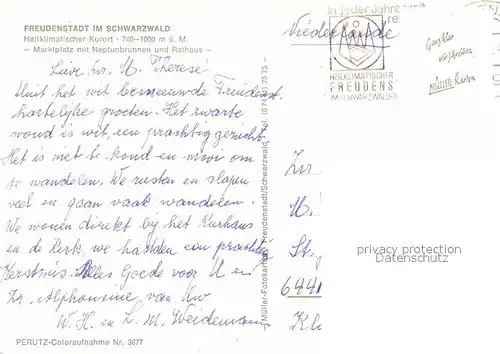 FREUDENSTADT IM SCHWARZWALD
Heilklimatischer Kurort · 740–1000 m ü. M.
– Marktplatz mit Neptunbrunnen und Rathaus –
Lieve Zr. M. Therese
Uit het wit besneeuwde Freudenst.
hartelijke groeten. Het zwarte
woud is wit, een prachtig gezicht.
Het is niet te koud en mooi om
te wandelen. We rusten en slapen
veel en gaan vaak wandelen.
We wonen direkt bij het Kurhaus
en de Kerk, we hadden een prachtig
Kerstmis. Alles Goede voor U en
Zr. Alphonsine van Uw
W. H. en L. M. Weidemann
PERUTZ-Coloraufnahme Nr. 3677
Müller-Fotokarten Freudenstadt/Schwarzwald
75 75
Niederlande
in jeder Jahres
HEILKLIMATISCHER
FREUDENS
IM SCHWARZWALD
MÜLLER-Karten
Zr
M.
6441
Kl
privacy protection
Datenschutz